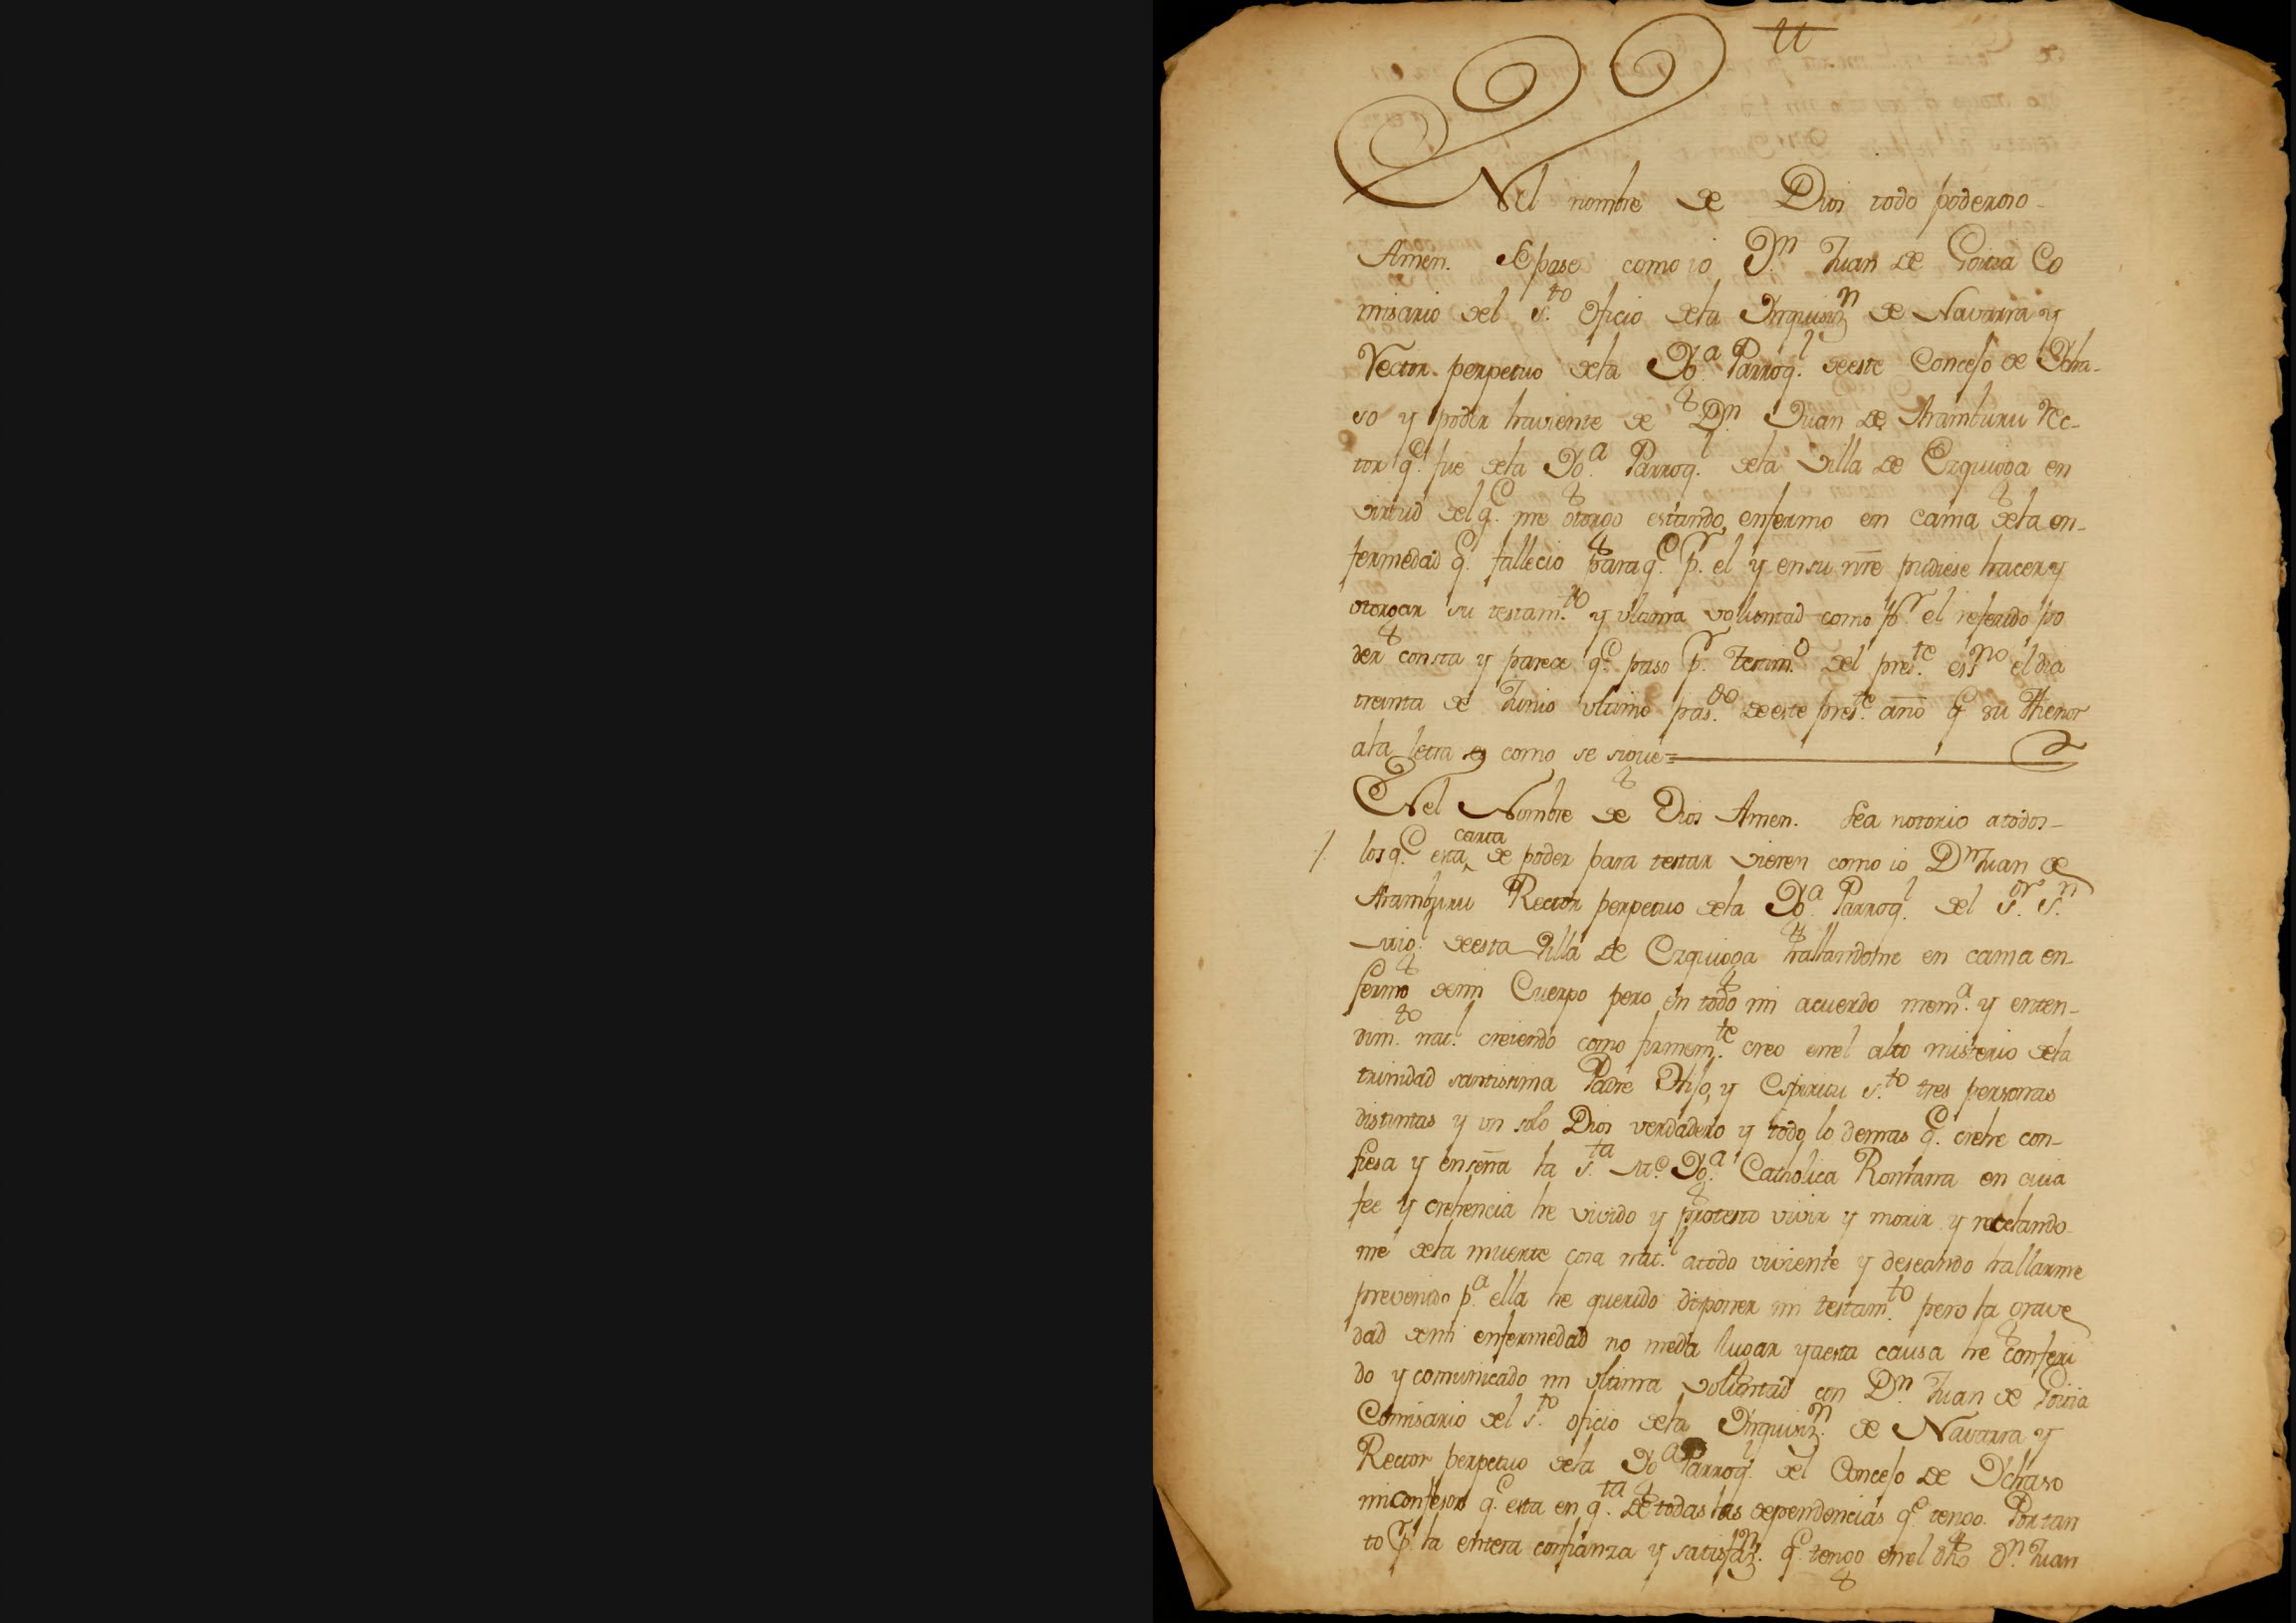 Nel nombre de Dios todo poderoso
Amen. Sepase como io Dn. Juan de Goiria Co
misario del s.to Oficio dela Ynquisiz.n de Navarra y
Rector perpetuo dela Yg.a Parroq.l deeste Concejo de Ycha-
so y poder haviente de Dn. Juan de Aramburu Rec-
tor q.e fue dela Yg.a Parroq.l dela villa de Ezquioga en
virtud del q.e me otorgo estando enfermo en cama dela en-
fermedad q.e fallecio para q.e p.r el y en su nre pudiese hacer y
otorgar su testam.to y vltima voluntad como p.r el referido po
der consta y parece q.e paso p.r testim.o del pres.te ess.no el dia
treinta de Junio vltimo pas.do de este pres.te año q.e su thenor
ala letra es como se sigue=
Nel Nombre de Dios Amen. Sea notorio atodos
los q.e esta carta de poder para testar vieren como io Dn Juan de
Aramburu Rector perpetuo dela Yg.a Parroq.l del S.or S.n
Mig.l deesta Villa de Ezquioga hallandome en cama en-
fermo demi Cuerpo pero en todo mi acuerdo mem.a y enten-
dim.to nat.l creiendo como firmem.te creo enel alto misterio dela
trinidad santissima Padre Hijo, y Espiritu s.to tres personas
distintas y un solo Dios verdadero y todo lo demas q.e crehe con-
fiesa y enseña la s.ta M.e Yg.a Catholica Romana en cuia
fee y crehencia he vivido y protesto vivir y morir y recelando
me dela muerte cosa nat.l atodo viviente y deseando hallarme
prevenido p.a ella he querido disponer mi testam.to pero la grave
dad demi enfermedad no meda lugar y aesta causa he conferi
do y comunicado mi vltima voluntad con Dn. Juan de Goiria
Comisario del s.to oficio dela Ynquisiz.n de Navarra y
Rector perpetuo dela Yg.a Parroq.l del Concejo de Ychaso
mi confesor q.e esta en q.ta de todas las dependencias q.e tengo. Por tan
to p.r la entera confianza y satisfaz.n q.e tengo enel dho Dn. Juan